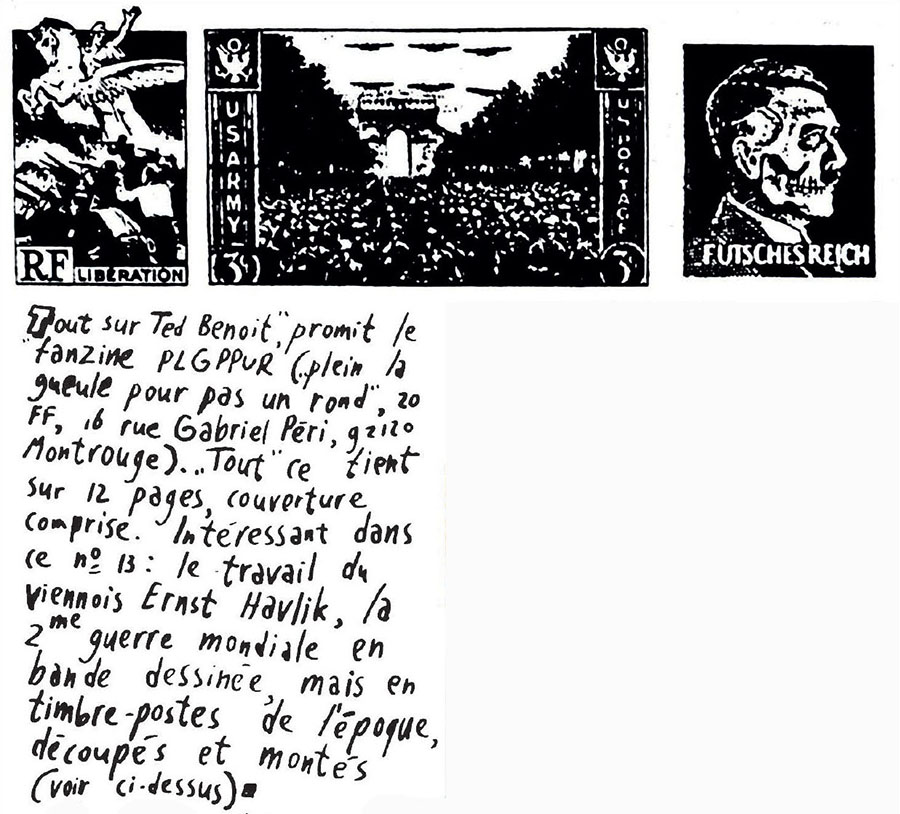 RF LIBÉRATION
U.S. ARMY
U.S. POSTAGE
3
3
FUTSCHES REICH
Tout sur Ted Benoit", promit le
"fanzine PLGPPUR ("plein la
gueule pour pas un rond", 20
FF, 16 rue Gabriel Péri, 92120
Montrouge)..."Tout" ce tient
sur 12 pages, couverture
comprise. Intéressant dans
ce nº 13: le travail du
viennois Ernst Havlik, la
2me guerre mondiale en
bande dessinée, mais en
timbre-postes de l'époque,
découpés et montés
(voir ci-dessus)